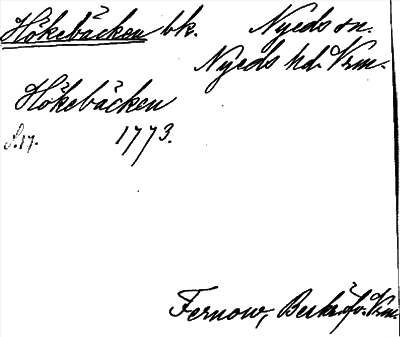 Hökebäcken bk. Nyeds sn.
Nyeds hd. Vrm.
Hökebäcken
S. 17. 1773.
Fernow, Beskrifv. Vrm.